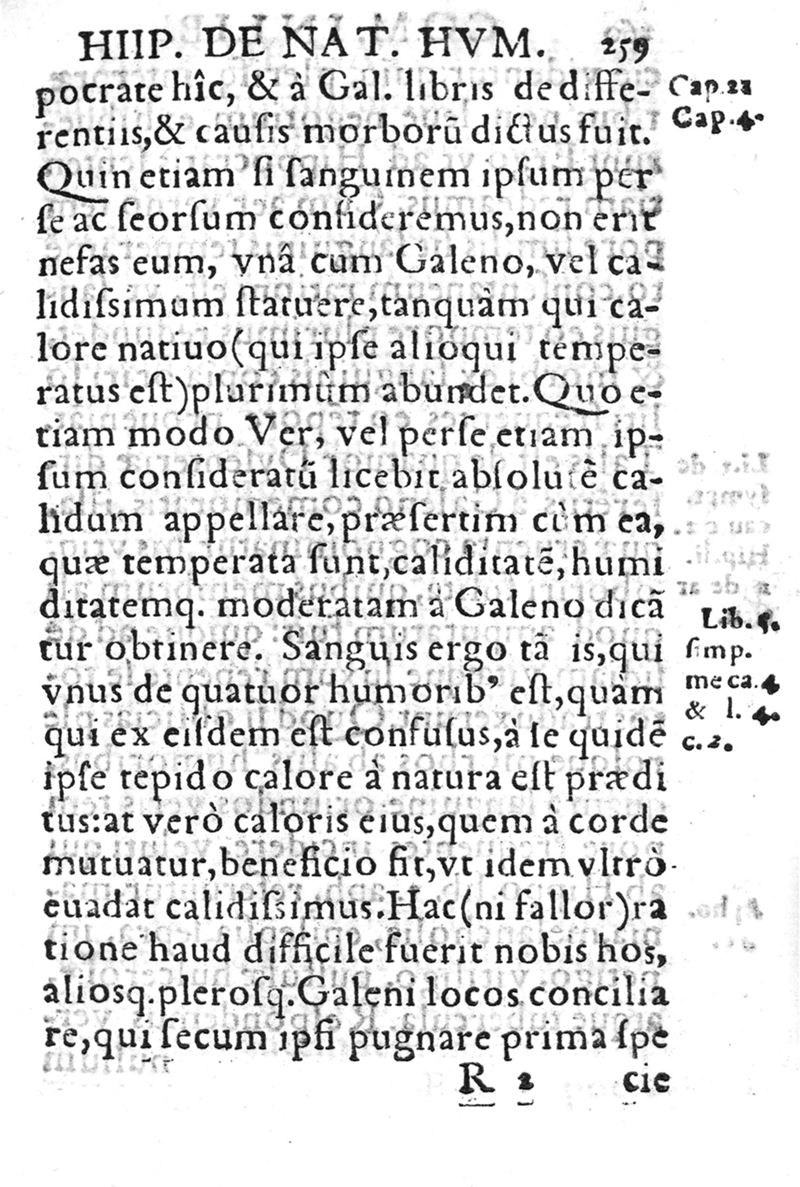 HIIP. DE NAT. HVM. 259
pocrate hîc, & à Gal. libris de diffe-
rentiis,& causis morborũ dictus fuit.
Cap. 22
Cap. 4.
Quin etiam si sanguinem ipsum per
se ac seorsum consideremus,non erit
nefas eum, vnâ cum Galeno, vel ca-
lidissimum statuere,tanquàm qui ca-
lore natiuo(qui ipse alioqui tempe-
ratus est)plurimùm abundet.Quo e-
tiam modo Ver, vel per se etiam ip-
sum consideratũ licebit absolutê ca-
lidum appellare,præsertim cùm ea,
quæ temperata sunt,caliditatẽ,humi
ditatemq. moderatam à Galeno dicã
tur obtinere. Sanguis ergo tã is,qui
vnus de quatuor humorib' est,quàm
qui ex eisdem est confusus,à se quidẽ
Lib. 5.
simp.
me ca. 4
& l. 4.
c. 2.
ipse tepido calore à natura est prædi
tus:at verò caloris eius,quem à corde
mutuatur,beneficio fit,vt idem vltrò
euadat calidissimus.Hac(ni fallor)ra
tione haud difficile fuerit nobis hos,
aliosq.plerosq.Galeni locos concilia
re,qui secum ipsi pugnare prima spe
R 2 cie